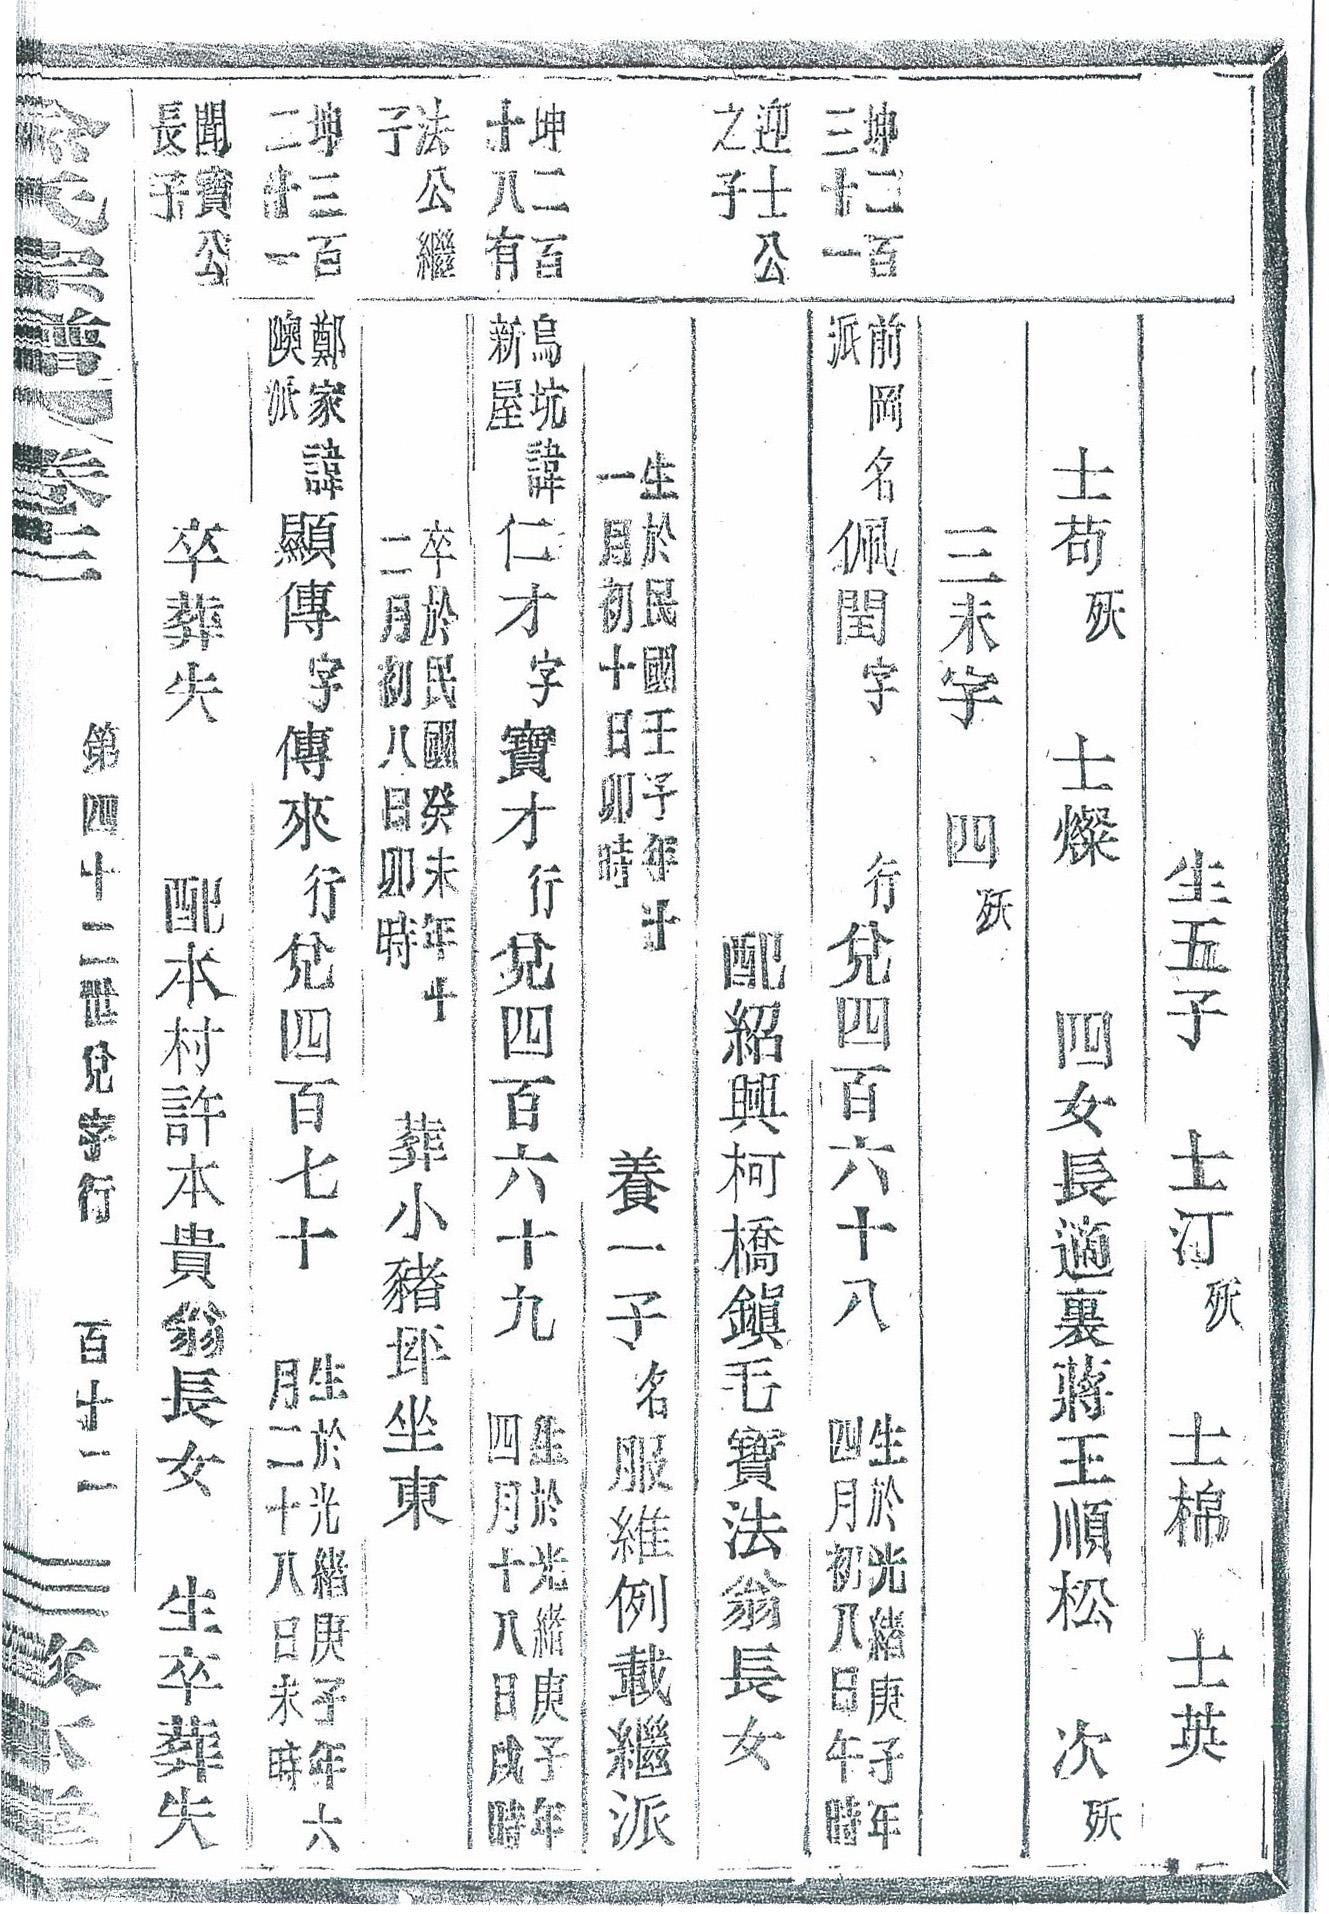 生五子　士汀殀　士棉　士英
士苟殀　士燦　四女長適裏蔣王順松　次殀
三未字　四殀
坤二百三十一
前岡派名佩閏字　行兌四百六十八　生於光緒庚子年四月初八日午時
迎士公之子
配紹興柯橋鎮毛寶法翁長女
生於民國壬子年十一月初十日卯時　養一子名服維例載繼派
坤二百十八有
烏坑新屋諱仁才字寶才行兌四百六十九　生於光緒庚子年四月十八日戌時
法公繼子
卒於民國癸未年十二月初八日卯時　葬小豬坐東
坤三百二十一
鄭家陳派諱顯傳字傳來行兌四百七十　生於光緒庚子年六月二十八日未時
聞寶公長子
卒葬失　配本村許本貴翁長女　生卒葬失
氏宗譜　卷三　第四十二世兌字行　百十二　本堂